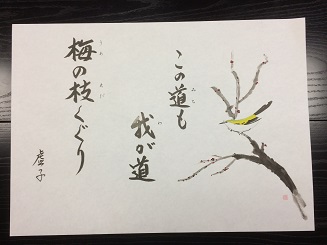 この道も
我が道
梅の枝くぐり
虚子